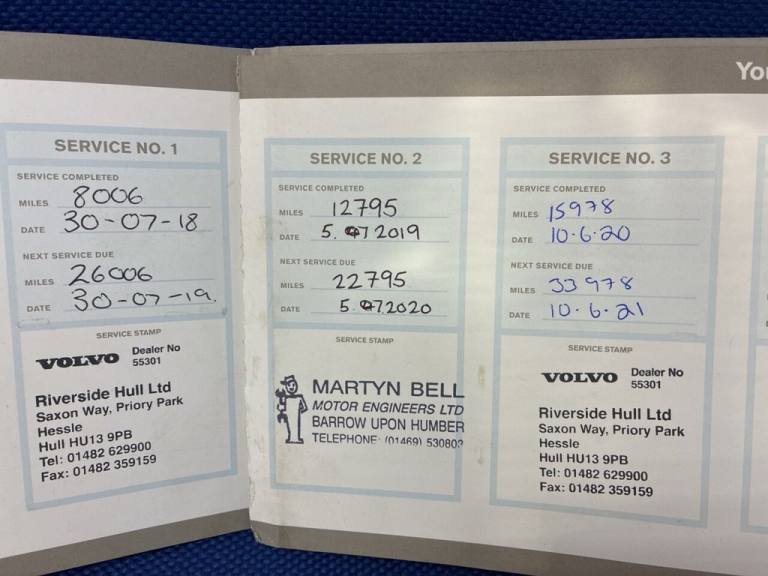 You
SERVICE NO. 1
SERVICE COMPLETED
MILES 8006
DATE 30-07-18
NEXT SERVICE DUE
MILES 26006
DATE 30-07-19.
SERVICE STAMP
VOLVO Dealer No
55301
Riverside Hull Ltd
Saxon Way, Priory Park
Hessle
Hull HU13 9PB
Tel: 01482 629900
Fax: 01482 359159
SERVICE NO. 2
SERVICE COMPLETED
MILES 12795
DATE 5. 7 2019
NEXT SERVICE DUE
MILES 22795
DATE 5. 7.2020
SERVICE STAMP
MARTYN BELL
MOTOR ENGINEERS LTD
BARROW UPON HUMBER
TELEPHONE: (01469) 530803
SERVICE NO. 3
SERVICE COMPLETED
MILES 15978
DATE 10.6.20
NEXT SERVICE DUE
MILES 33978
DATE 10.6.21
SERVICE STAMP
VOLVO Dealer No
55301
Riverside Hull Ltd
Saxon Way, Priory Park
Hessle
Hull HU13 9PB
Tel: 01482 629900
Fax: 01482 359159